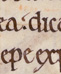 ra. dica
epe exp